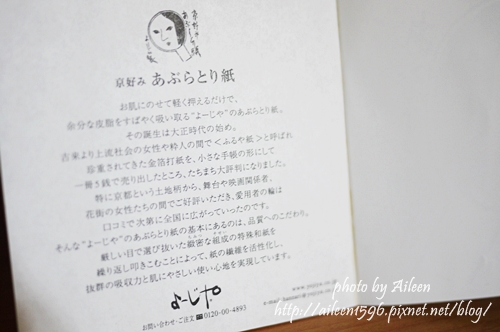 京好み あぶらとり紙
お肌にのせて軽く押えるだけで、
余分な皮脂をすばやく吸い取る"よーじや"のあぶらとり紙。
その誕生は大正時代の始め。
古来より上流社会の女性や粋人の間で<ふるや紙>と呼ばれ
珍重されてきた金箔打紙を、小さな手帳の形にして
一冊5銭で売り出したところ、たちまち大評判になりました。
特に京都という土地柄から、舞台や映画関係者、
花街の女性たちの間でご好評いただき、愛用者の輪は
口コミで次第に全国に広がっていったのです。
そんな"よーじや"のあぶらとり紙の基本にあるのは、品質へのこだわり。
厳しい目で選び抜いた緻密な組成の特殊和紙を
繰り返し叩きこむことによって、紙の繊維を活性化し、
抜群の吸収力と肌にやさしい使い心地を実現しています。
よーじや
お問い合わせ・ご注文 0120-00-4893
photo by Aileen
http://aileen1596.pixnet.net/blog/